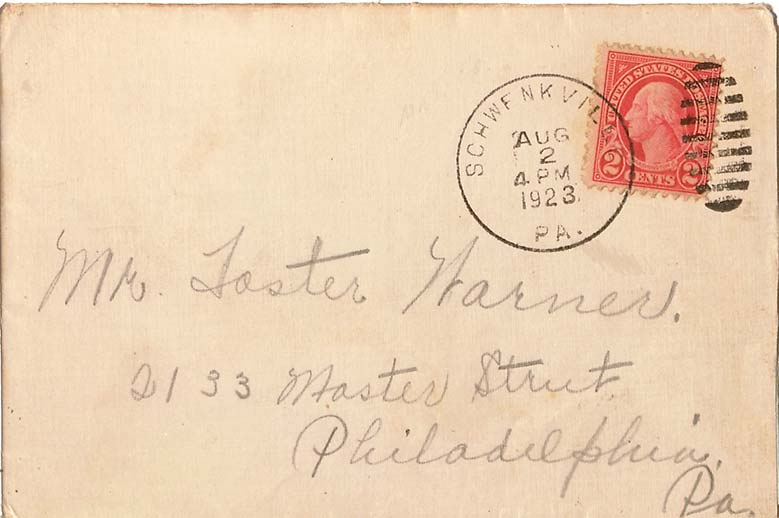 SCHWENKVILL
AUG
2
4 PM
1923
PA.
UNITED STATES POSTAGE
2 CENTS 2
Mr. Foster Warner.
2133 Master Street
Philadelphia,
Pa.